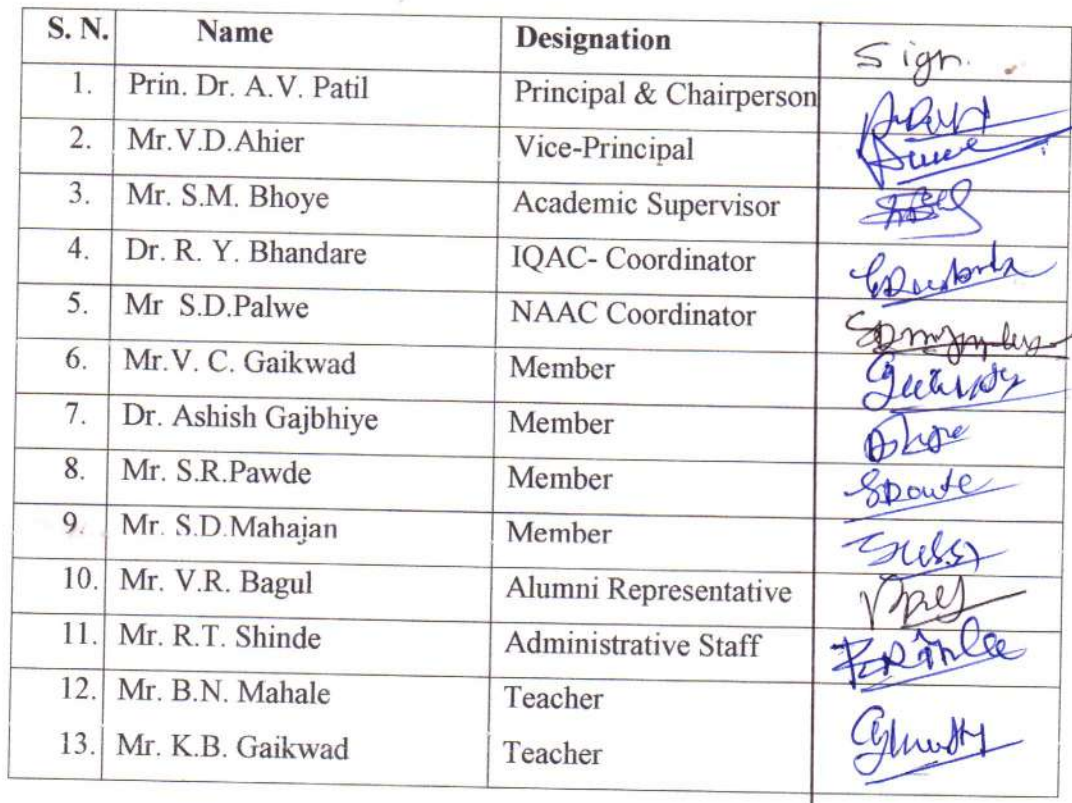 S. N. Name Designation Sign.
1. Prin. Dr. A.V. Patil Principal & Chairperson
2. Mr.V.D.Ahier Vice-Principal
3. Mr. S.M. Bhoye Academic Supervisor
4. Dr. R. Y. Bhandare IQAC- Coordinator
5. Mr S.D.Palwe NAAC Coordinator
6. Mr.V. C. Gaikwad Member
7. Dr. Ashish Gajbhiye Member
8. Mr. S.R.Pawde Member
9. Mr. S.D.Mahajan Member
10. Mr. V.R. Bagul Alumni Representative
11. Mr. R.T. Shinde Administrative Staff
12. Mr. B.N. Mahale Teacher
13. Mr. K.B. Gaikwad Teacher